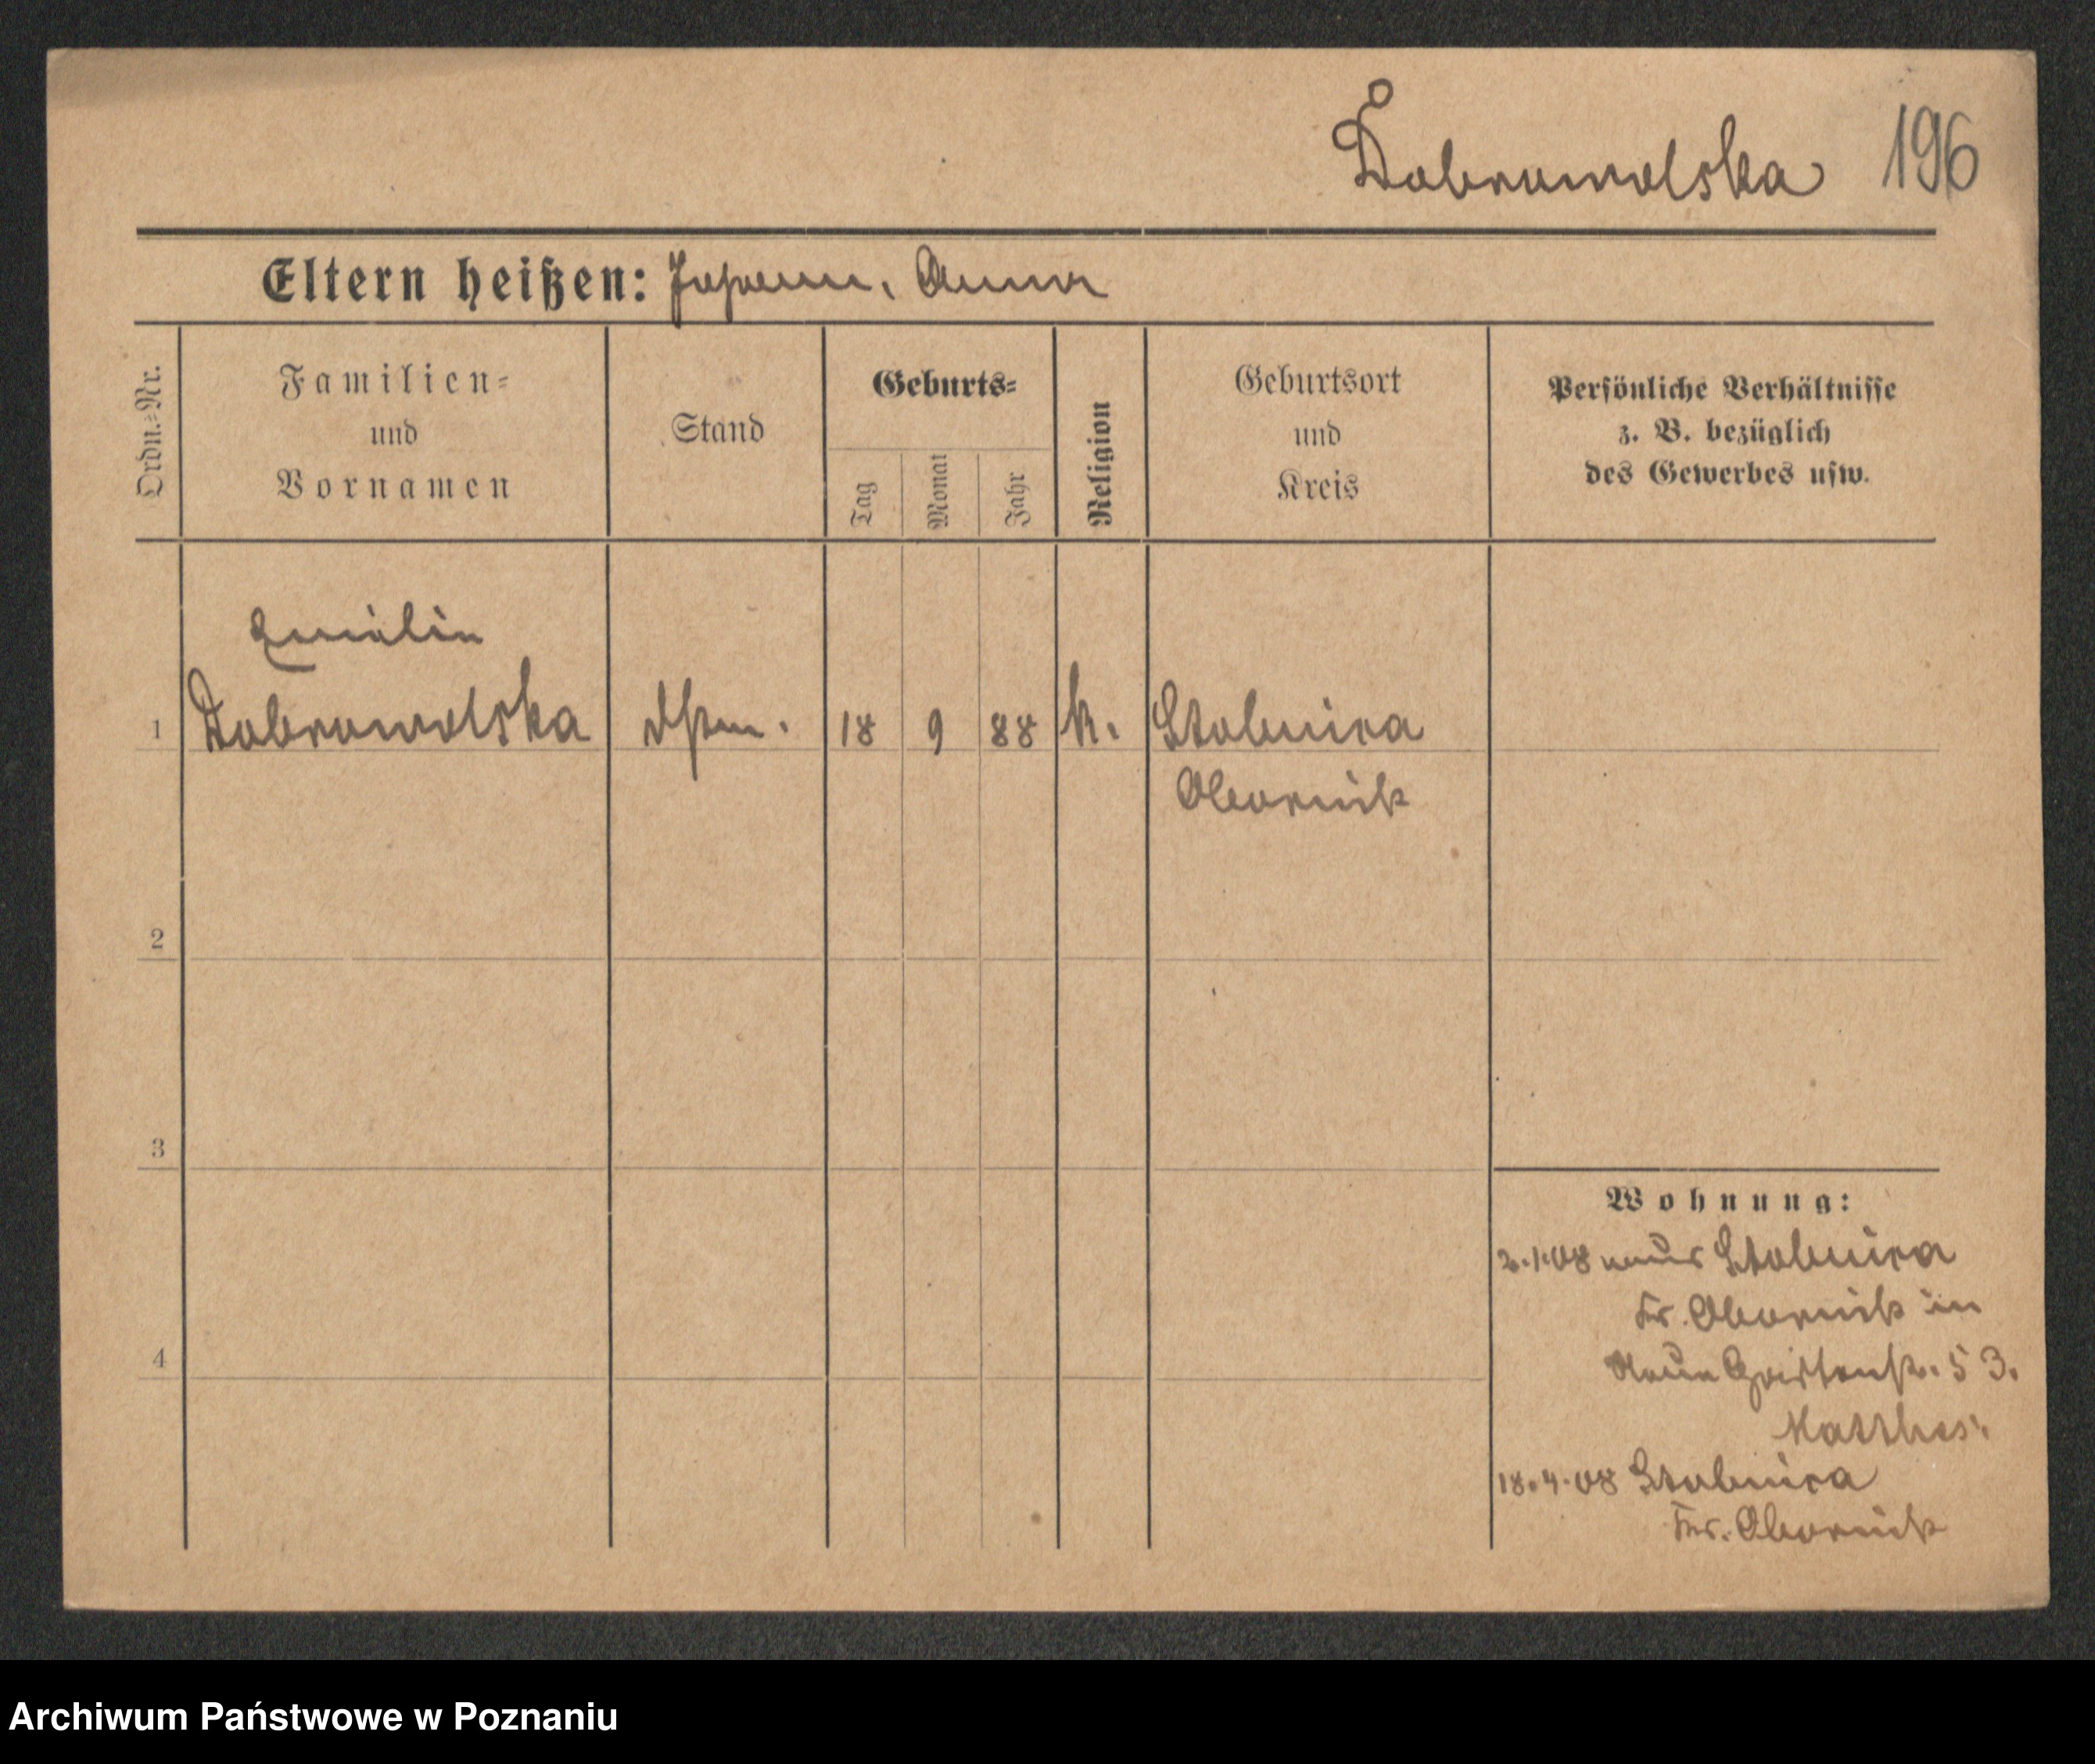 Dobrowolska 196
Eltern heißen: Johann, Anna
Ordn.=Nr.
Familien=
und
Vornamen
Stand
Geburts=
Tag
Monat
Jahr
Religion
Geburtsort
und
Kreis
Persönliche Verhältnisse
z. B. bezüglich
des Gewerbes usw.
1 Dobrowolska 18 9 88 k. Stobnica
Obornik
2
3
4
Wohnung:
2.1.08 Stobnica
Kr. Obornik in
Neue Gartenstr. 53.
Matthes.
18.4.08 Stobnica
Kr. Obornik
Archiwum Państwowe w Poznaniu